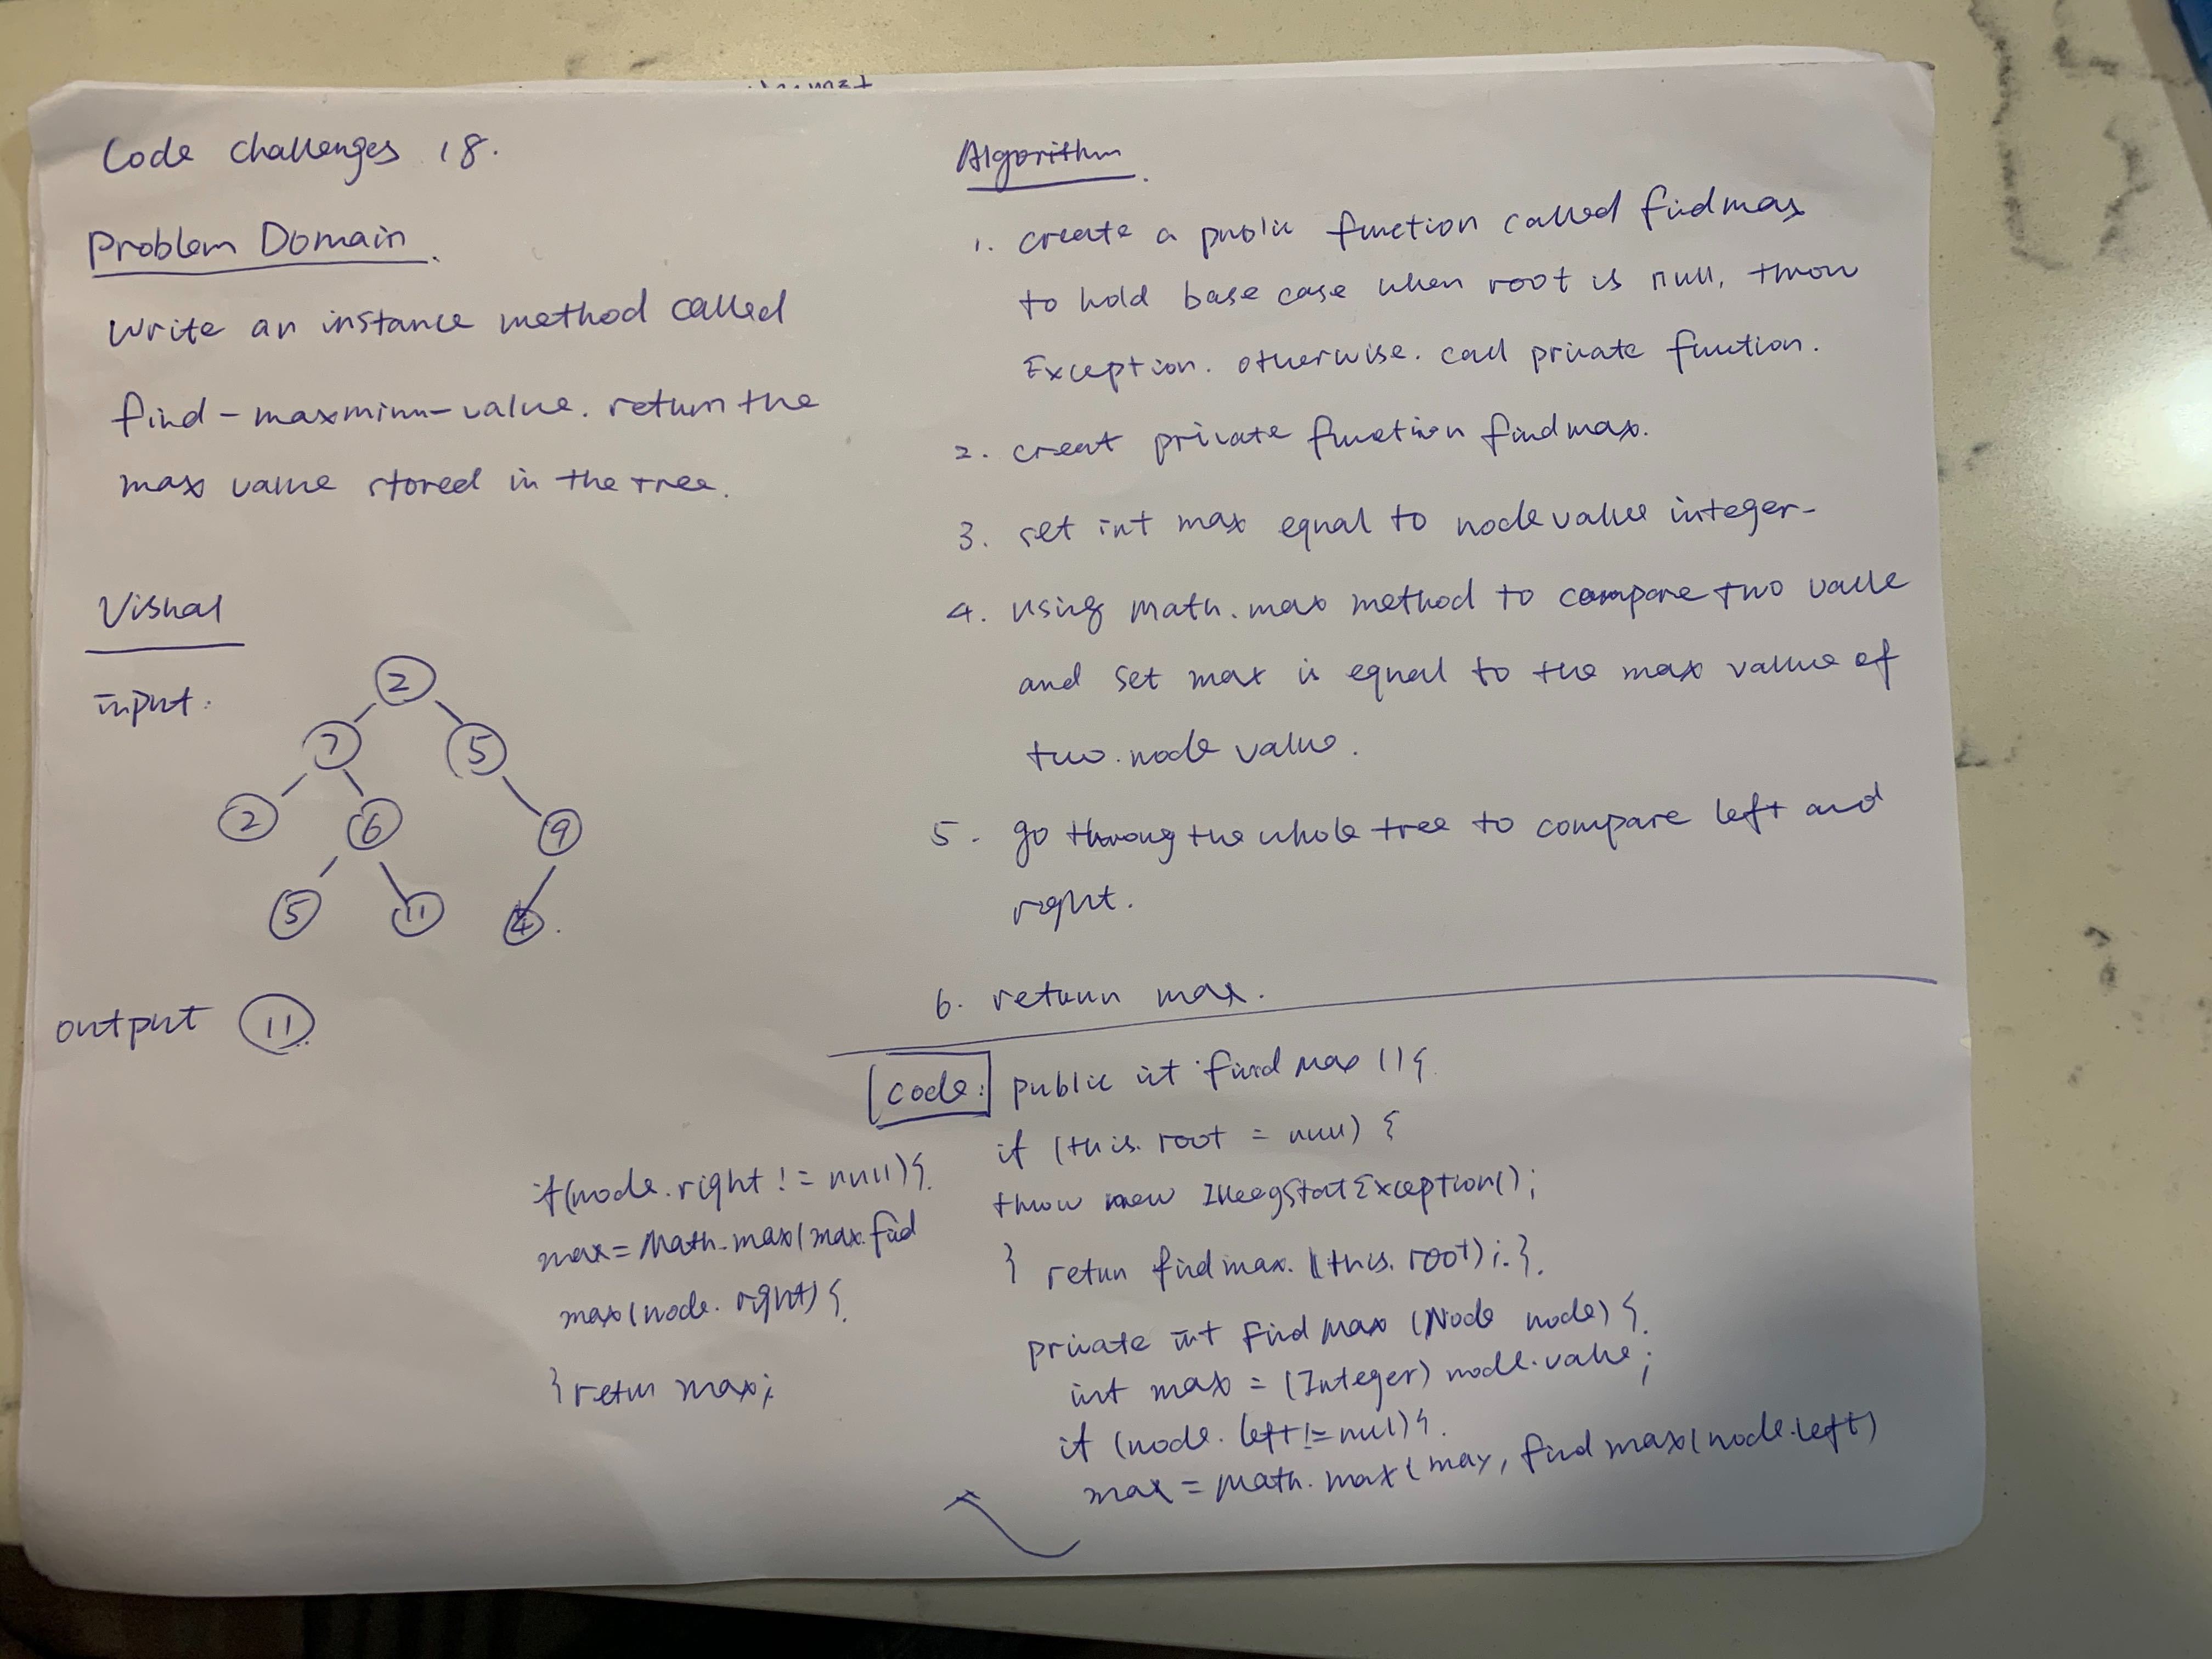 Code Challenges 18.
Problem Domain.
Write an instance method called
find-maxminu-value. return the
max value stored in the tree.
Visual
input:
2
7
5
2
6
9
5
11
4
output 11
Algorithm
1. create a public function called findmax
to hold base case when root is null, throw
Exception. otherwise. call private function.
2. creat private function findmax.
3. set int max equal to node value integer-
4. using math.max method to compare two value
and set max is equal to the max value of
two.node value.
5. go throug the whole tree to compare left and
right.
6. return max.
Code: public int find max () {
if (this.root = null) {
throw new IlleegStatException();
} retun findmax.(this.root);.}.
private int find max (Node node) {
int max = (Integer) node.value;
if (node.left != null) {
max = Math.max(max, find max(node.left)
if(node.right != null){
max = Math.max(max.find
max(node.right) {
} retun max;